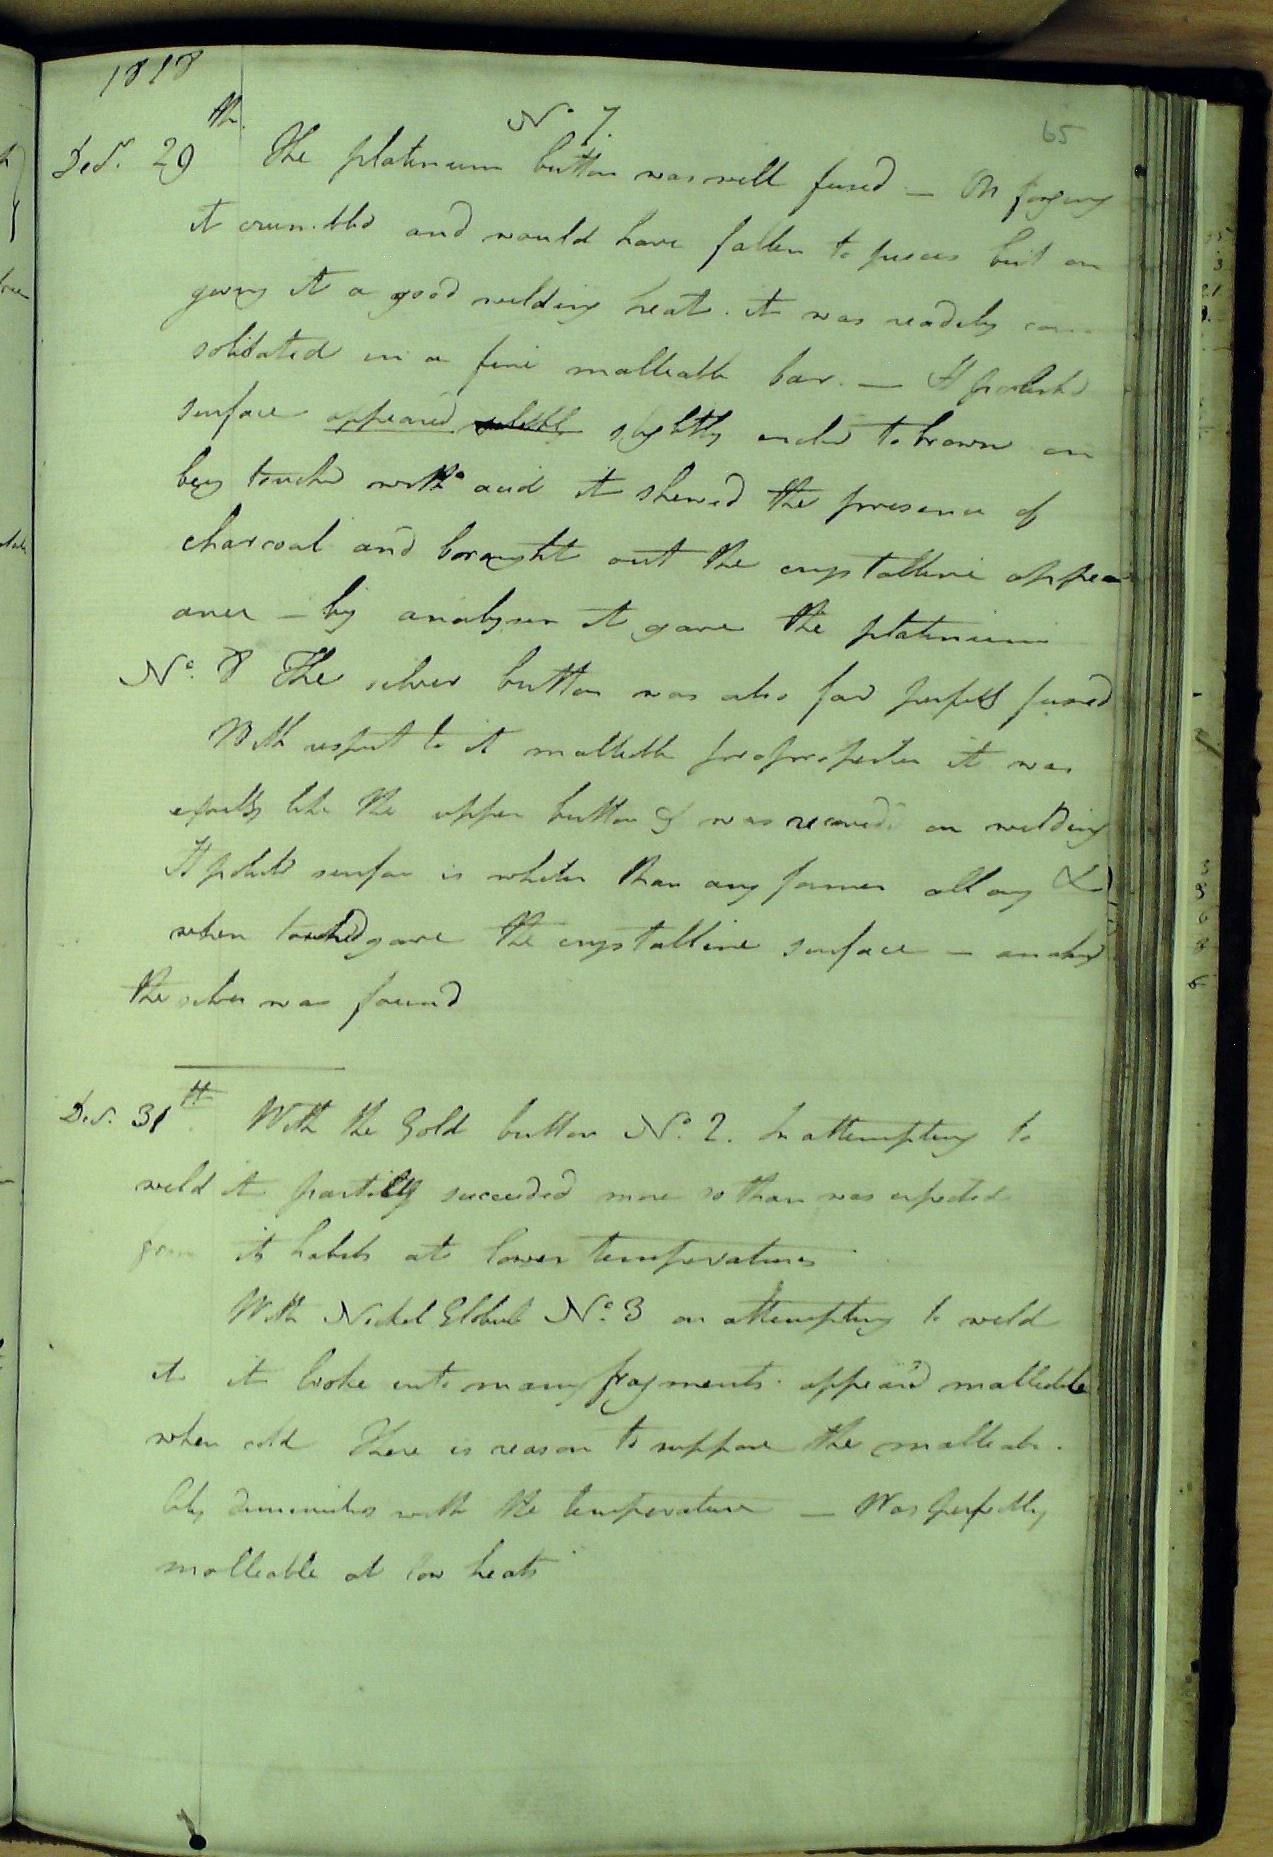 1818
65
No. 7.
Decr. 29th. The platinum button was well fused — On forging
it crumbled and would have fallen to pieces but on
giving it a good welding heat. it was readily con
solidated in a fine malleable bar. — It polished
surface appeared slightly inclin to brown on
being touched with acid it shewed the presence of
charcoal and brought out the crystalline appear
ance — by analysis it gave the platinum
No. 8 The silver button was also perfect fused
With respect to it malleable it was
exactly like the upper button & was on welding
It polishd surface is whiter than any former alloy &
when touched gave the crystalline surface —
the silver was found
Decr. 31st With the Gold button No. 2. In attempting to
weld it partially succeeded more so than was expected
from its habits at lower temperatures
With Nickel Globule No. 3 on attempting to weld
it it broke into many fragments. appeard malleable
when cold There is reason to suppose the malleabi-
lity diminishes with the temperature — Was perfectly
malleable at low heats